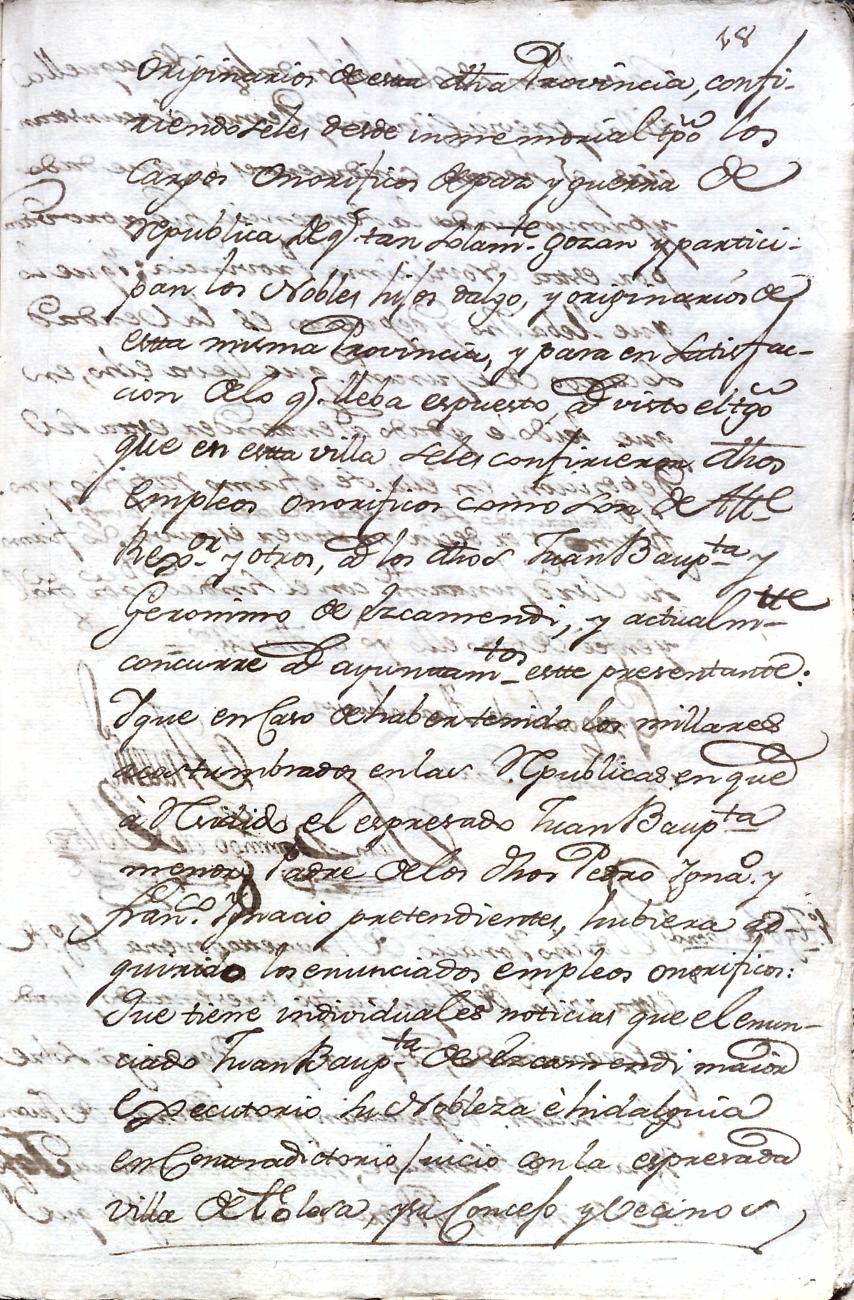 18
originarios de esta dha Provincia, confi-
riendoseles desde inmemorial tpõ los
Cargos Onorificos de paz y guerra de
Republica de q.e tan Solam.te gozan y partici-
pan los Nobles hijos dalgo, y originarios de
esta misma Provincia, y para en Satisfac-
cion de lo q.e lleba espuesto, ad visto el tgõ
que en esta villa Seles confirieron dhos
Empleos onorificos como son de Alle
Rexor y otros, ad los dhos Juan Baupta y
Geronimo de Ezcamendi, y actualmtte
concurre ad ayuntamtos estte presentante.
Y que en Caso de haber tenido los millares
acostumbrados en las Republicas en que
à Residido el espresado Juan Baupta
menor, Padre de los dhos Pedro Ignao y
Franco Ignacio pretendientes, hubiera ad-
quirido los enunciados empleos onorificos:
Que tiene individuales noticias que el enun-
ciado Juan Baupta de Ezcamendi maior
Executorio Su Nobleza è hidalguia
en Contradictorio Juicio con la espresada
villa de Tolosa, y su Concejo y Vecinos